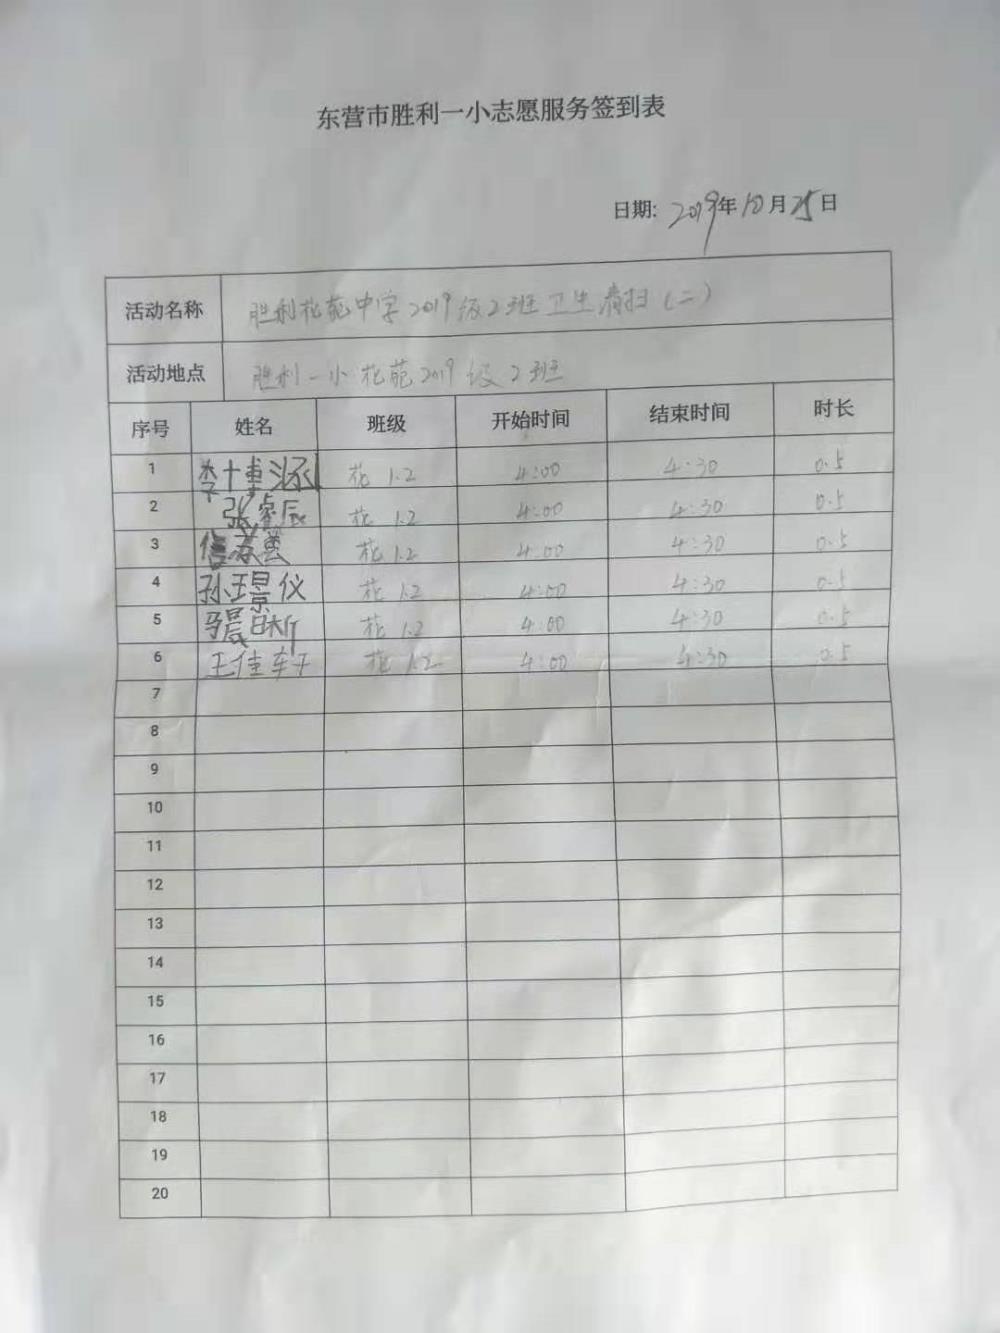 东营市胜利一小志愿服务签到表
日期: 2019年10月25日
活动名称 胜利花苑中学2019级2班卫生清扫(二)
活动地点 胜利一小花苑2019级2班
序号 姓名 班级 开始时间 结束时间 时长
1 李博涵 花1.2 4:00 4:30 0.5
2 张睿辰 花1.2 4:00 4:30 0.5
3 花1.2 4:00 4:30 0.5
4 孙璟仪 花1.2 4:00 4:30 0.5
5 晨昕 花1.2 4:00 4:30 0.5
6 王佳轩 花1.2 4:00 4:30 0.5
7
8
9
10
11
12
13
14
15
16
17
18
19
20